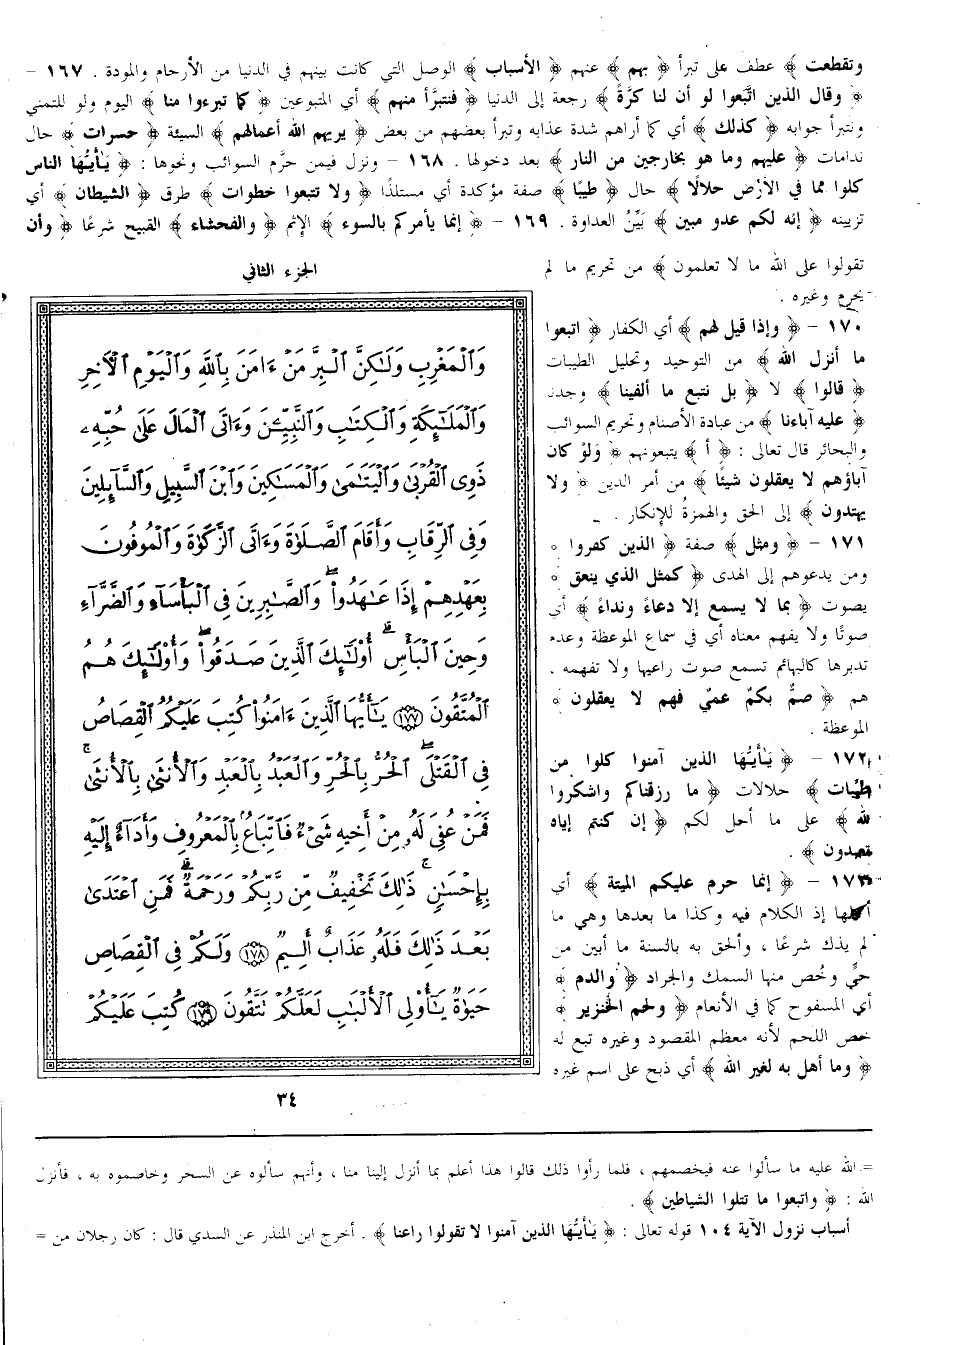 وتقطعت ﴾ عطف على تبرأ ﴿ بهم ﴾ عنهم ﴿ الأسباب ﴾ الوصل التي كانت بينهم في الدنيا من الأرحام والمودة . ١٦٧ -
﴿ وقال الذين اتبَّعوا لو أن لنا كرَّةً ﴾ رجعة إلى الدنيا ﴿ فنتبرَّأ منهم ﴾ أي المتبوعين ﴿ كما تبرءوا منا ﴾ اليوم ولو للتمني
ونتبرأ جوابه ﴿ كذلك ﴾ أي كما أراهم شدة عذابه وتبرأ بعضهم من بعض ﴿ يريهم الله أعمالهم ﴾ السيئة ﴿ حسرات ﴾ حال
ندامات ﴿ عليهم وما هو بخارجين من النار ﴾ بعد دخولها . ١٦٨ - ونزل فيمن حرَّم السوائب ونحوها : ﴿ يَـٰأيُّها الناس
كلوا مما في الأرض حلالًا ﴾ حال ﴿ طيبًا ﴾ صفة مؤكدة أي مستلذًا ﴿ ولا تتبعوا خطوات ﴾ طرق ﴿ الشيطان ﴾ أي
تزيينه ﴿ إنه لكم عدو مبين ﴾ بَيِّنُ العداوة . ١٦٩ - ﴿ إنما يأمركم بالسوء ﴾ الإثم ﴿ والفحشاء ﴾ القبيح شرعًا ﴿ وأن
تقولوا على الله ما لا تعلمون ﴾ من تحريم ما لم
يحرم وغيره .
١٧٠ - ﴿ وإذا قيل لهم ﴾ أي الكفار ﴿ اتبعوا
ما أنزل الله ﴾ من التوحيد وتحليل الطيبات
﴿ قالوا ﴾ لا ﴿ بل نتبع ما ألفينا ﴾ وجدنا
﴿ عليه آباءنا ﴾ من عبادة الأصنام وتحريم السوائب
والبحائر قال تعالى : ﴿ أ ﴾ يتبعونهم ﴿ وَلوْ كان
آباؤهم لا يعقلون شيئًا ﴾ من أمر الدين ﴿ ولا
يهتدون ﴾ إلى الحق والهمزةُ للإنكار .
١٧١ - ﴿ ومثل ﴾ صفة ﴿ الذين كفروا ﴾
ومن يدعوهم إلى الهدى ﴿ كمثل الذي ينعق ﴾
يصوت ﴿ بما لا يسمع إلا دعاءً ونداءً ﴾ أي
صوتًا ولا يفهم معناه أي في سماع الموعظة وعدم
تدبرها كالبهائم تسمع صوت راعيها ولا تفهمه .
هم ﴿ صمٌّ بكمٌ عميٌ فهم لا يعقلون ﴾
الموعظة .
١٧٢ - ﴿ يَـٰأيُّها الذين آمنوا كلوا من
طيبات ﴾ حلالات ﴿ ما رزقناكم واشكروا
لله ﴾ على ما أحل لكم ﴿ إن كنتم إياه
تعبدون ﴾ .
١٧٣ - ﴿ إنما حرم عليكم الميتة ﴾ أي
أكلها إذ الكلام فيه وكذا ما بعدها وهي ما
لم يذك شرعًا ، وألحق به بالسنة ما أبين من
حيٍّ وخُص منها السمك والجراد ﴿ والدم ﴾
أي المسفوح كما في الأنعام ﴿ ولحم الخنزير ﴾
خص اللحم لأنه معظم المقصود وغيره تبع له
﴿ وما أهل به لغير الله ﴾ أي ذبح على اسم غيره
الجزء الثاني
وَٱلْمَغْرِبِ وَلَـٰكِنَّ ٱلْبِرَّ مَنْ ءَامَنَ بِٱللَّهِ وَٱلْيَوْمِ ٱلْـَٔاخِرِ
وَٱلْمَلَـٰٓئِكَةِ وَٱلْكِتَـٰبِ وَٱلنَّبِيِّـۧنَ وَءَاتَى ٱلْمَالَ عَلَىٰ حُبِّهِۦ
ذَوِى ٱلْقُرْبَىٰ وَٱلْيَتَـٰمَىٰ وَٱلْمَسَـٰكِينَ وَٱبْنَ ٱلسَّبِيلِ وَٱلسَّآئِلِينَ
وَفِى ٱلرِّقَابِ وَأَقَامَ ٱلصَّلَوٰةَ وَءَاتَى ٱلزَّكَوٰةَ وَٱلْمُوفُونَ
بِعَهْدِهِمْ إِذَا عَـٰهَدُوا۟ ۖ وَٱلصَّـٰبِرِينَ فِى ٱلْبَأْسَآءِ وَٱلضَّرَّآءِ
وَحِينَ ٱلْبَأْسِ ۗ أُو۟لَـٰٓئِكَ ٱلَّذِينَ صَدَقُوا۟ ۖ وَأُو۟لَـٰٓئِكَ هُمُ
ٱلْمُتَّقُونَ ١٧٧ يَـٰٓأَيُّهَا ٱلَّذِينَ ءَامَنُوا۟ كُتِبَ عَلَيْكُمُ ٱلْقِصَاصُ
فِى ٱلْقَتْلَى ۖ ٱلْحُرُّ بِٱلْحُرِّ وَٱلْعَبْدُ بِٱلْعَبْدِ وَٱلْأُنثَىٰ بِٱلْأُنثَىٰ ۚ
فَمَنْ عُفِىَ لَهُۥ مِنْ أَخِيهِ شَىْءٌ فَٱتِّبَاعٌۢ بِٱلْمَعْرُوفِ وَأَدَآءٌ إِلَيْهِ
بِإِحْسَـٰنٍ ۗ ذَٰلِكَ تَخْفِيفٌ مِّن رَّبِّكُمْ وَرَحْمَةٌ ۗ فَمَنِ ٱعْتَدَىٰ
بَعْدَ ذَٰلِكَ فَلَهُۥ عَذَابٌ أَلِيمٌ ١٧٨ وَلَكُمْ فِى ٱلْقِصَاصِ
حَيَوٰةٌ يَـٰٓأُو۟لِى ٱلْأَلْبَـٰبِ لَعَلَّكُمْ تَتَّقُونَ ١٧٩ كُتِبَ عَلَيْكُمْ
٣٤
= الله عليه ما سألوا عنه فيخصمهم ، فلما رأوا ذلك قالوا هذا أعلم بما أنزل إلينا منا ، وأنهم سألوه عن السحر وخاصموه به ، فأنزل
الله : ﴿ واتبعوا ما تتلوا الشياطين ﴾ .
أسباب نزول الآية ١٠٤ قوله تعالى : ﴿ يَـٰأيُّها الذين آمنوا لا تقولوا راعنا ﴾ . أخرج ابن المنذر عن السدي قال : كان رجلان من =